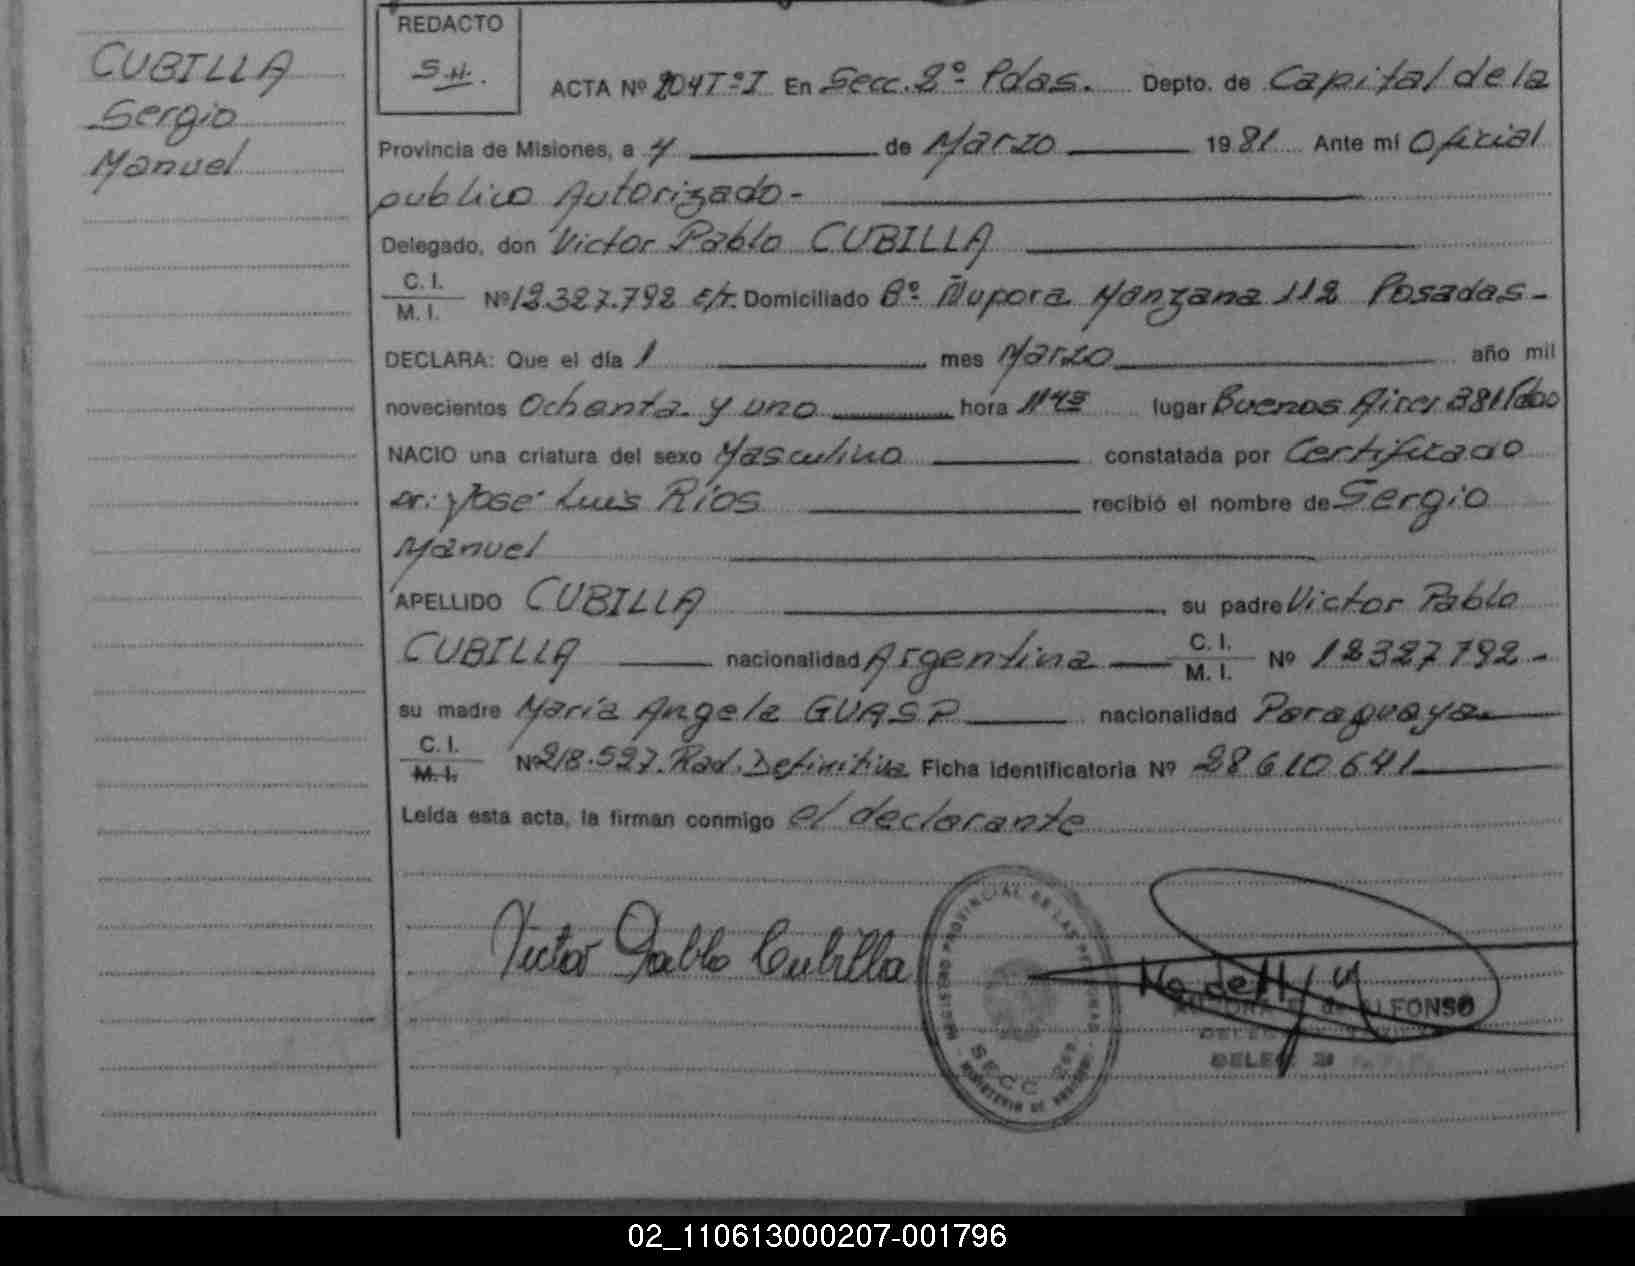 CUBILLA
Sergio
Manuel
REDACTO
S.H.
ACTA Nº 204 Tº I En Secc. 2º Pdas. Depto. de Capital de la
Provincia de Misiones, a 4 de Marzo 1981 Ante mi Oficial
publico Autorizado-
Delegado, don Victor Pablo CUBILLA
C. I.
M. I. Nº 12.327.792 Domiciliado Bº Ñupora Manzana 112 Posadas-
DECLARA: Que el día 1 mes Marzo año mil
novecientos Ochenta y uno hora lugar Buenos Aires
NACIO una criatura del sexo Masculino constatada por Certificado
Dr: José Luis Ríos recibió el nombre de Sergio
Manuel
APELLIDO CUBILLA su padre Victor Pablo
CUBILLA nacionalidad Argentina C. I.
M. I. Nº 12327792-
su madre María Angela GUASP nacionalidad Paraguaya
C. I.
M. I. Nº 218.527. Rad. Definitiva Ficha Identificatoria Nº 28610641
Leída esta acta, la firman conmigo el declarante
Victor Pablo Cubilla
REGISTRO PROVINCIAL DE LAS PERSONAS
SECC
de ALFONSO
02_110613000207-001796